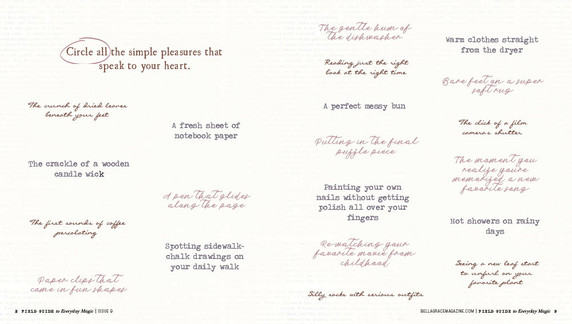 Circle all the simple pleasures that
speak to your heart.
The crunch of dried leaves
beneath your feet
A fresh sheet of
notebook paper
The crackle of a wooden
candle wick
A pen that glides
along the page
The first sounds of coffee
percolating
Spotting sidewalk-
chalk drawings on
your daily walk
Paper clips that
come in fun shapes
8 FIELD GUIDE to Everyday Magic | ISSUE 9
The gentle hum of
the dishwasher
Reading just the right
book at the right time
A perfect messy bun
Putting in the final
puzzle piece
Painting your own
nails without getting
polish all over your
fingers
Re-watching your
favorite movie from
childhood
Silly socks with serious outfits
Warm clothes straight
from the dryer
Bare feet on a super
soft rug
The click of a film
camera shutter
The moment you
realize you're
memorized a new
favorite song
Hot showers on rainy
days
Seeing a new leaf start
to unfurl on your
favorite plant
BELLAGRACEMAGAZINE.COM | FIELD GUIDE to Everyday Magic 9